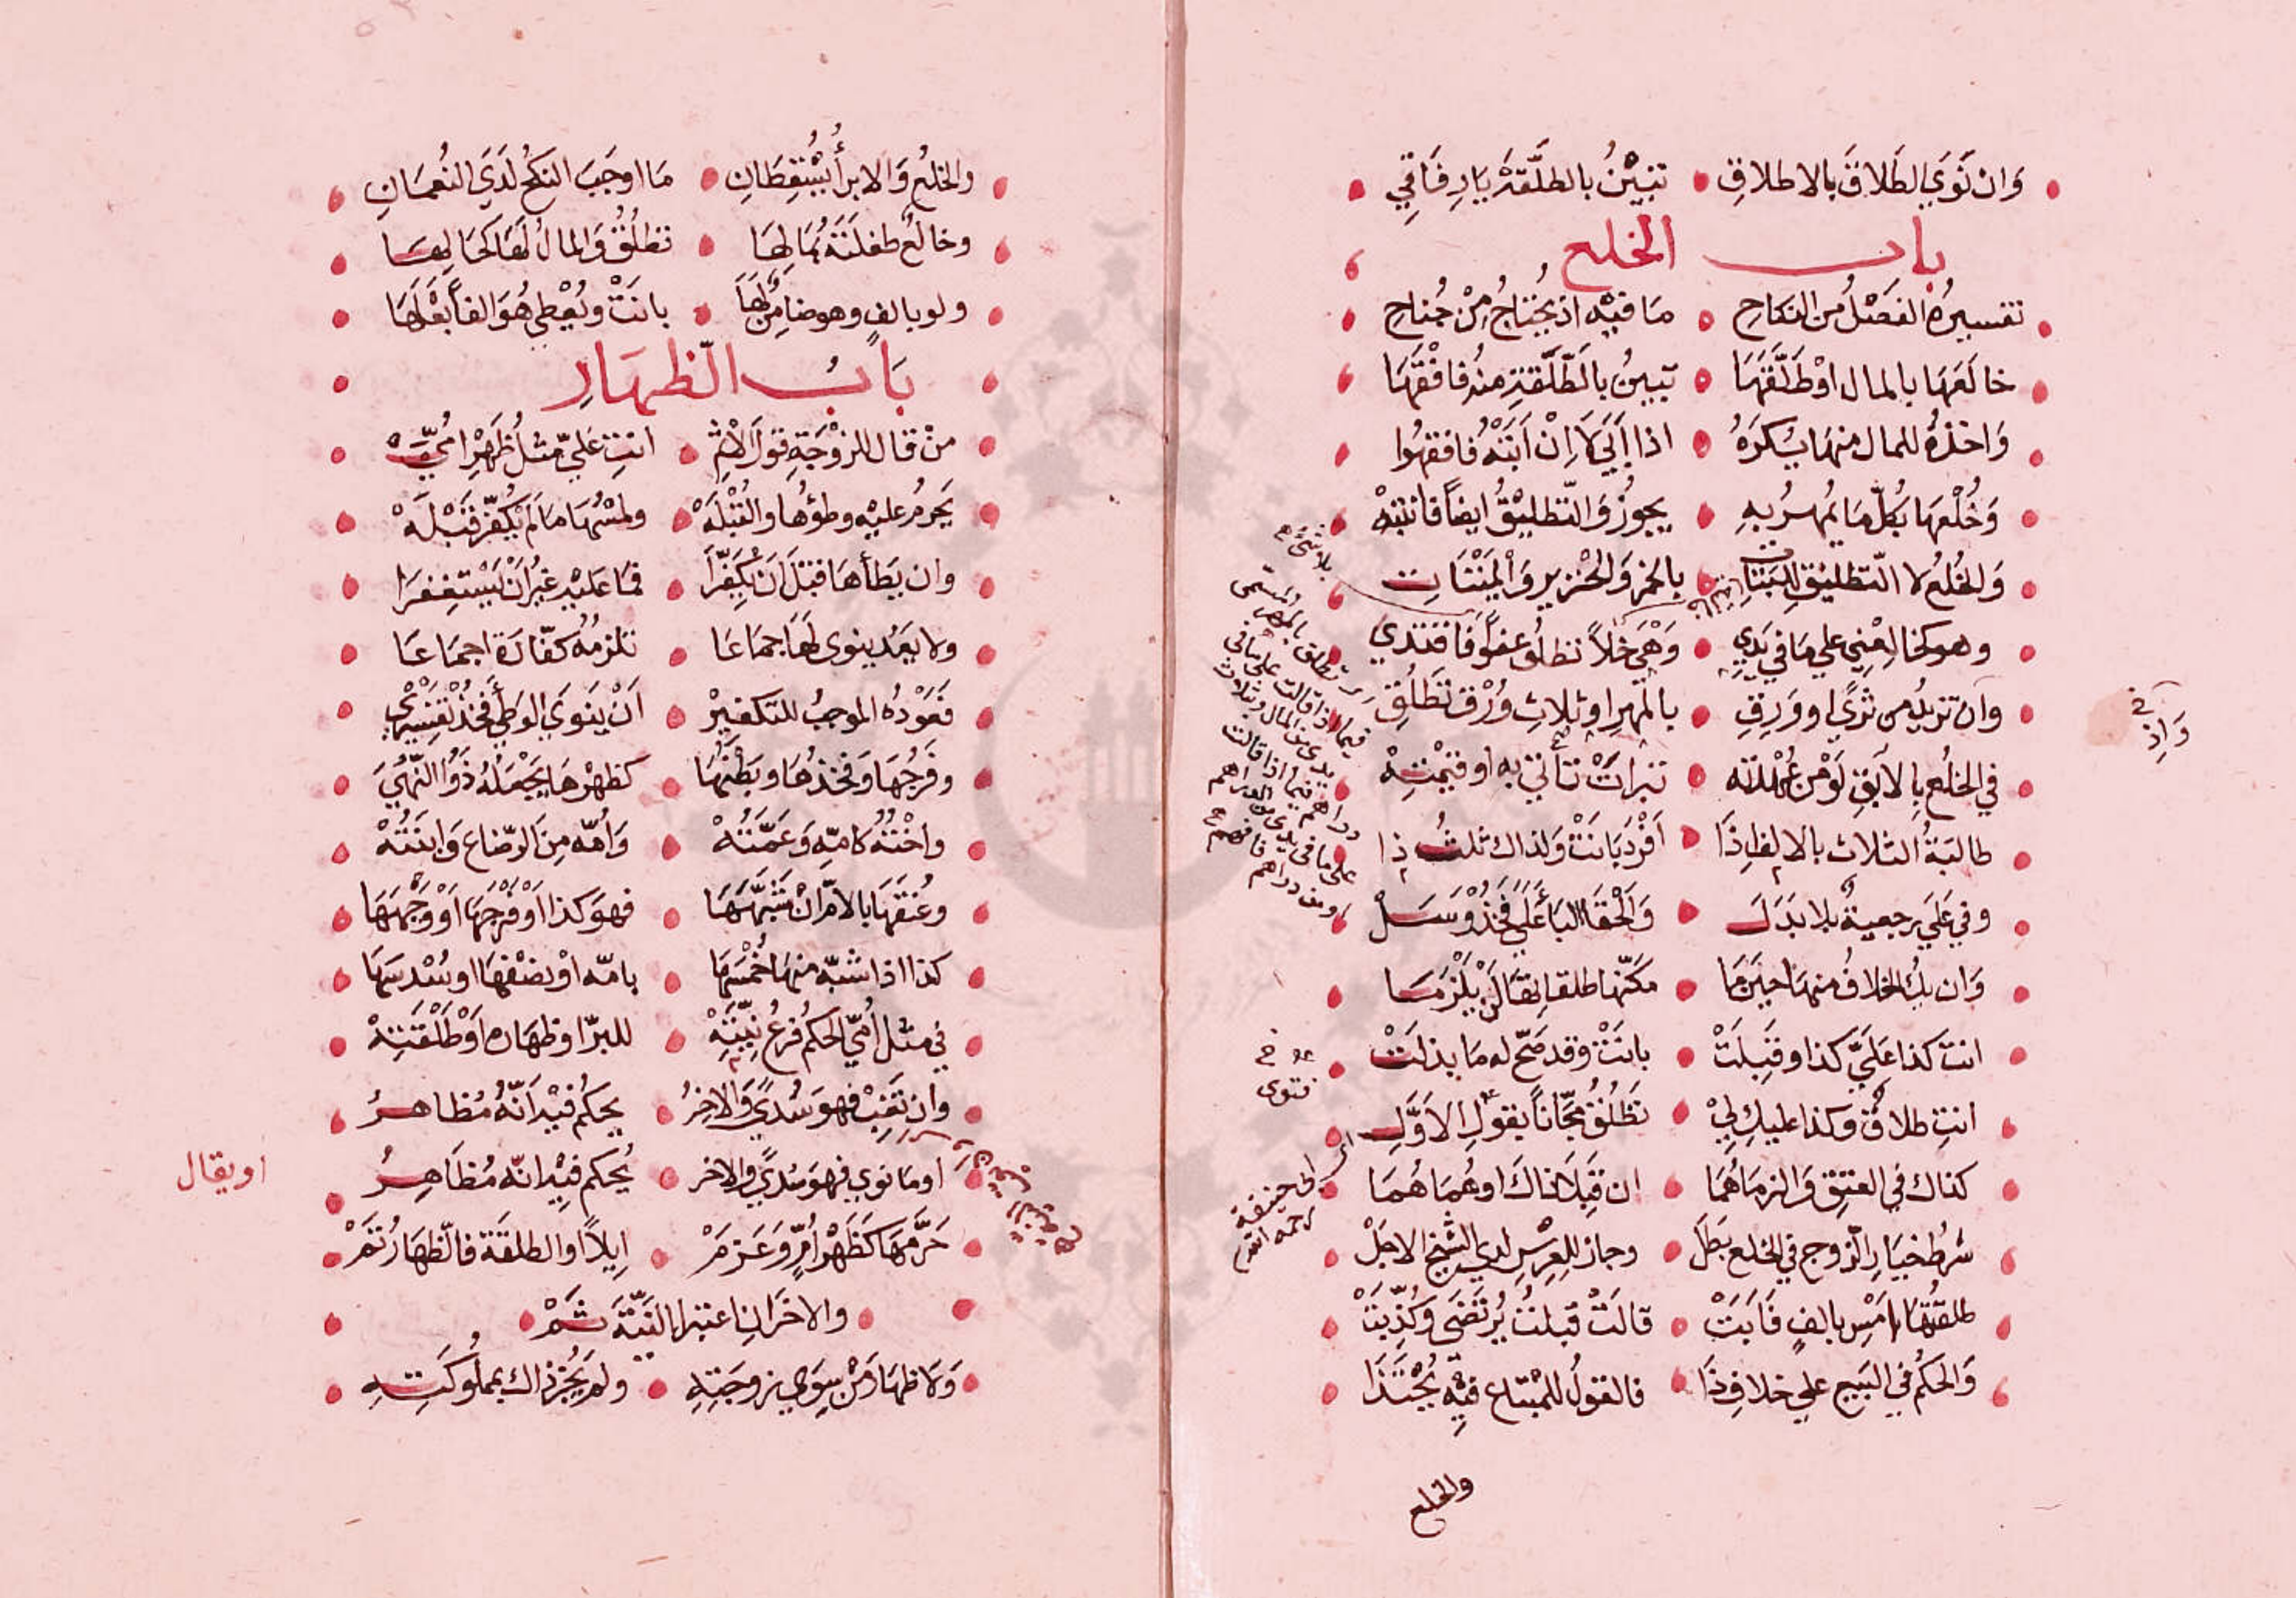 وَان نَوَي الطَلاقَ بالاطلاقِ تبينُ بالطلَّقةِ يَا رِفَاقِي
باب الخلع
تفسيرُهُ الفَصْلُ من النكاحِ مَا فيْه اذ يُحْتاجُ مِنْ جُناحِ
خالَعَهَا بالمال اوْ طَلَّقَهَا تبينُ بالطَّلْقَةِ منهُ فافْقَهَا
وَاخذهُ للمال منهَا يُكرَهُ اذا اَبَي لا اِنْ اَبَتْهُ فافقهُوا
وَخُلْعهَا بكُلّ مَا يُمهرُ بهِ يجوزُ وَالتطليْقُ ايضاً فانتبهْ
وَالخلعُ لا التطليْق بالخمرِ وَالخنزيرِ وَالميْتَاتِ
وهو كخالِعْنِي علي مَا في يَدِي وَهْيَ خَلاً تطلُق عفوًا فَاقتدي
وان تزيدُ من ثريً او وَرِقِ بالمهرِ او ثلاثِ وُرْقِ تَطْلُقِ
في الخلْع بالابقِ لوْ من عُهْدته تبراتْ تاتي به او قيْمتهْ
طالبَةُ الثلاث بالالف اِذَا اَفْرَدَ بَانَتْ وَلذاك ثلثُ ذا
وفي عَلَيَ رجعيةٌ بلا بَدَلَ وَالْحقَا البَا بعَلَي فخذْ وَسَلْ
وَان يكُ الخلافُ منهَا حيَنمَا مكّنهَا طلقا ثقَال لنْ يَلزمَا
انت كذا عَلَيَّ كذا وقَبِلَتْ بانَتْ وقد صَحّ له مَا بذلتْ
انتِ طلاقٌ وكذا عليكِ لِيْ تَطْلُقُ مجّاناً بقولِ الاوَّلِ
كذاك في العتقِ وَالزمَاهُمَا ان قَبِلا ذاكَ او هُمَا هُمَا
شرطُ خيَارِ الزوج في الخلع بَطَل وجاز للعِرْسِ لدي الشيخ الاجَلْ
طلقتُهَا امْسِ بالفٍ فَابَتْ قالَتْ قبلتُ يُرتَضَي وَكُذِّبَتْ
وَالحكمُ في البَيع علي خلافِ ذَا فالقولُ للمبْتاع فيْه يُحْتَذَا
والخلع
وَاِذ
بلا شئ
تطلق بالمهر المسمى
فيما اذا قالت على ما في
يدي من المال وثلاث
دراهم فيما اذا قالت
على ما في يدي من الدراهم
او من دراهم فافهم
فتوى
اي ابي حنيفة
رحمه الله
والخلعُ وَالابرأُ يُسْقِطَانِ مَا اوجَبَ النكحُ لدَي النُعمَانِ
وخالعٌ طفلَتَهُ بمَالِهَا تطلُقُ وَالمالُ لهَا كحَالِهَا
ولو بالفٍ وهو ضامِنٌ لهَا بانَتْ ويُعْطِي هُوَ الفاً بَعْلَهَا
بَابُ الظهَارِ
منْ قال للزوْجَةِ قوْلَ الاثمِ انتِ عَليّ مثلُ ظَهْرِ امّي
يَحرمُ عليْه وطؤُهَا والقُبْلَهْ ولمْسُهَا مَا لم يُكفّر قَبْلَهْ
وان يَطأْهَا قبْلَ اَنْ يُكَفّرَا فمَا عَليْهِ غيرُ اَنْ يَسْتغفرَا
ولا يَعُد ينوي لهَا جمَاعَا تلزمُهُ كفّارَة اجمَاعَا
فعَوْدُهُ الموجبُ للتكفيرْ اَنْ ينَوي الوَطْيَ فخذْ تفْسيري
وفَرْجُهَا وَفخذُهَا وبَطْنُهَا كظهْرهَا يَجْعَلُهُ ذَوُو النُّهَي
واخْتُهُ كامّهِ وَعَمّتُهْ وَاُمّه مِنَ الرّضاع وَابنَتُهْ
وعُنقَهَا بالامّ انْ شَبَّهَهَا فهوَ كذا اَوْ فرْجهَا اَوْ وَجْهَهَا
كذا اذا شبّه منهَا خُمْسَهَا بامّه اوْ نصْفهَا او سُدسَهَا
في مثلُ اُمّي الحكمُ فرعُ نِيّتِهْ للبرّ او ظهاره اَوْ طَلْقَتِهْ
وان تَغِبْ فهوَ سُديً وَالاخرُ يحكمُ فيْه اَنّهُ مُظاهرُ
او مَا نوي فهوَ سُديً والاخر يُحكم فيْه انّه مُظَاهِرُ
حَرَّمَهَا كَظَهْر اُمّ وَعَزمْ اِيلاً او الطلقَة فالظهَارُ تَمْ
والاخَرانِ اعتبرا النيَّةَ ثَمْ
وَلا ظهَارَ مَنْ سِوَي زوجَتِهِ ولم يَجُز ذاك بمملُوكَتِهِ
او يقال